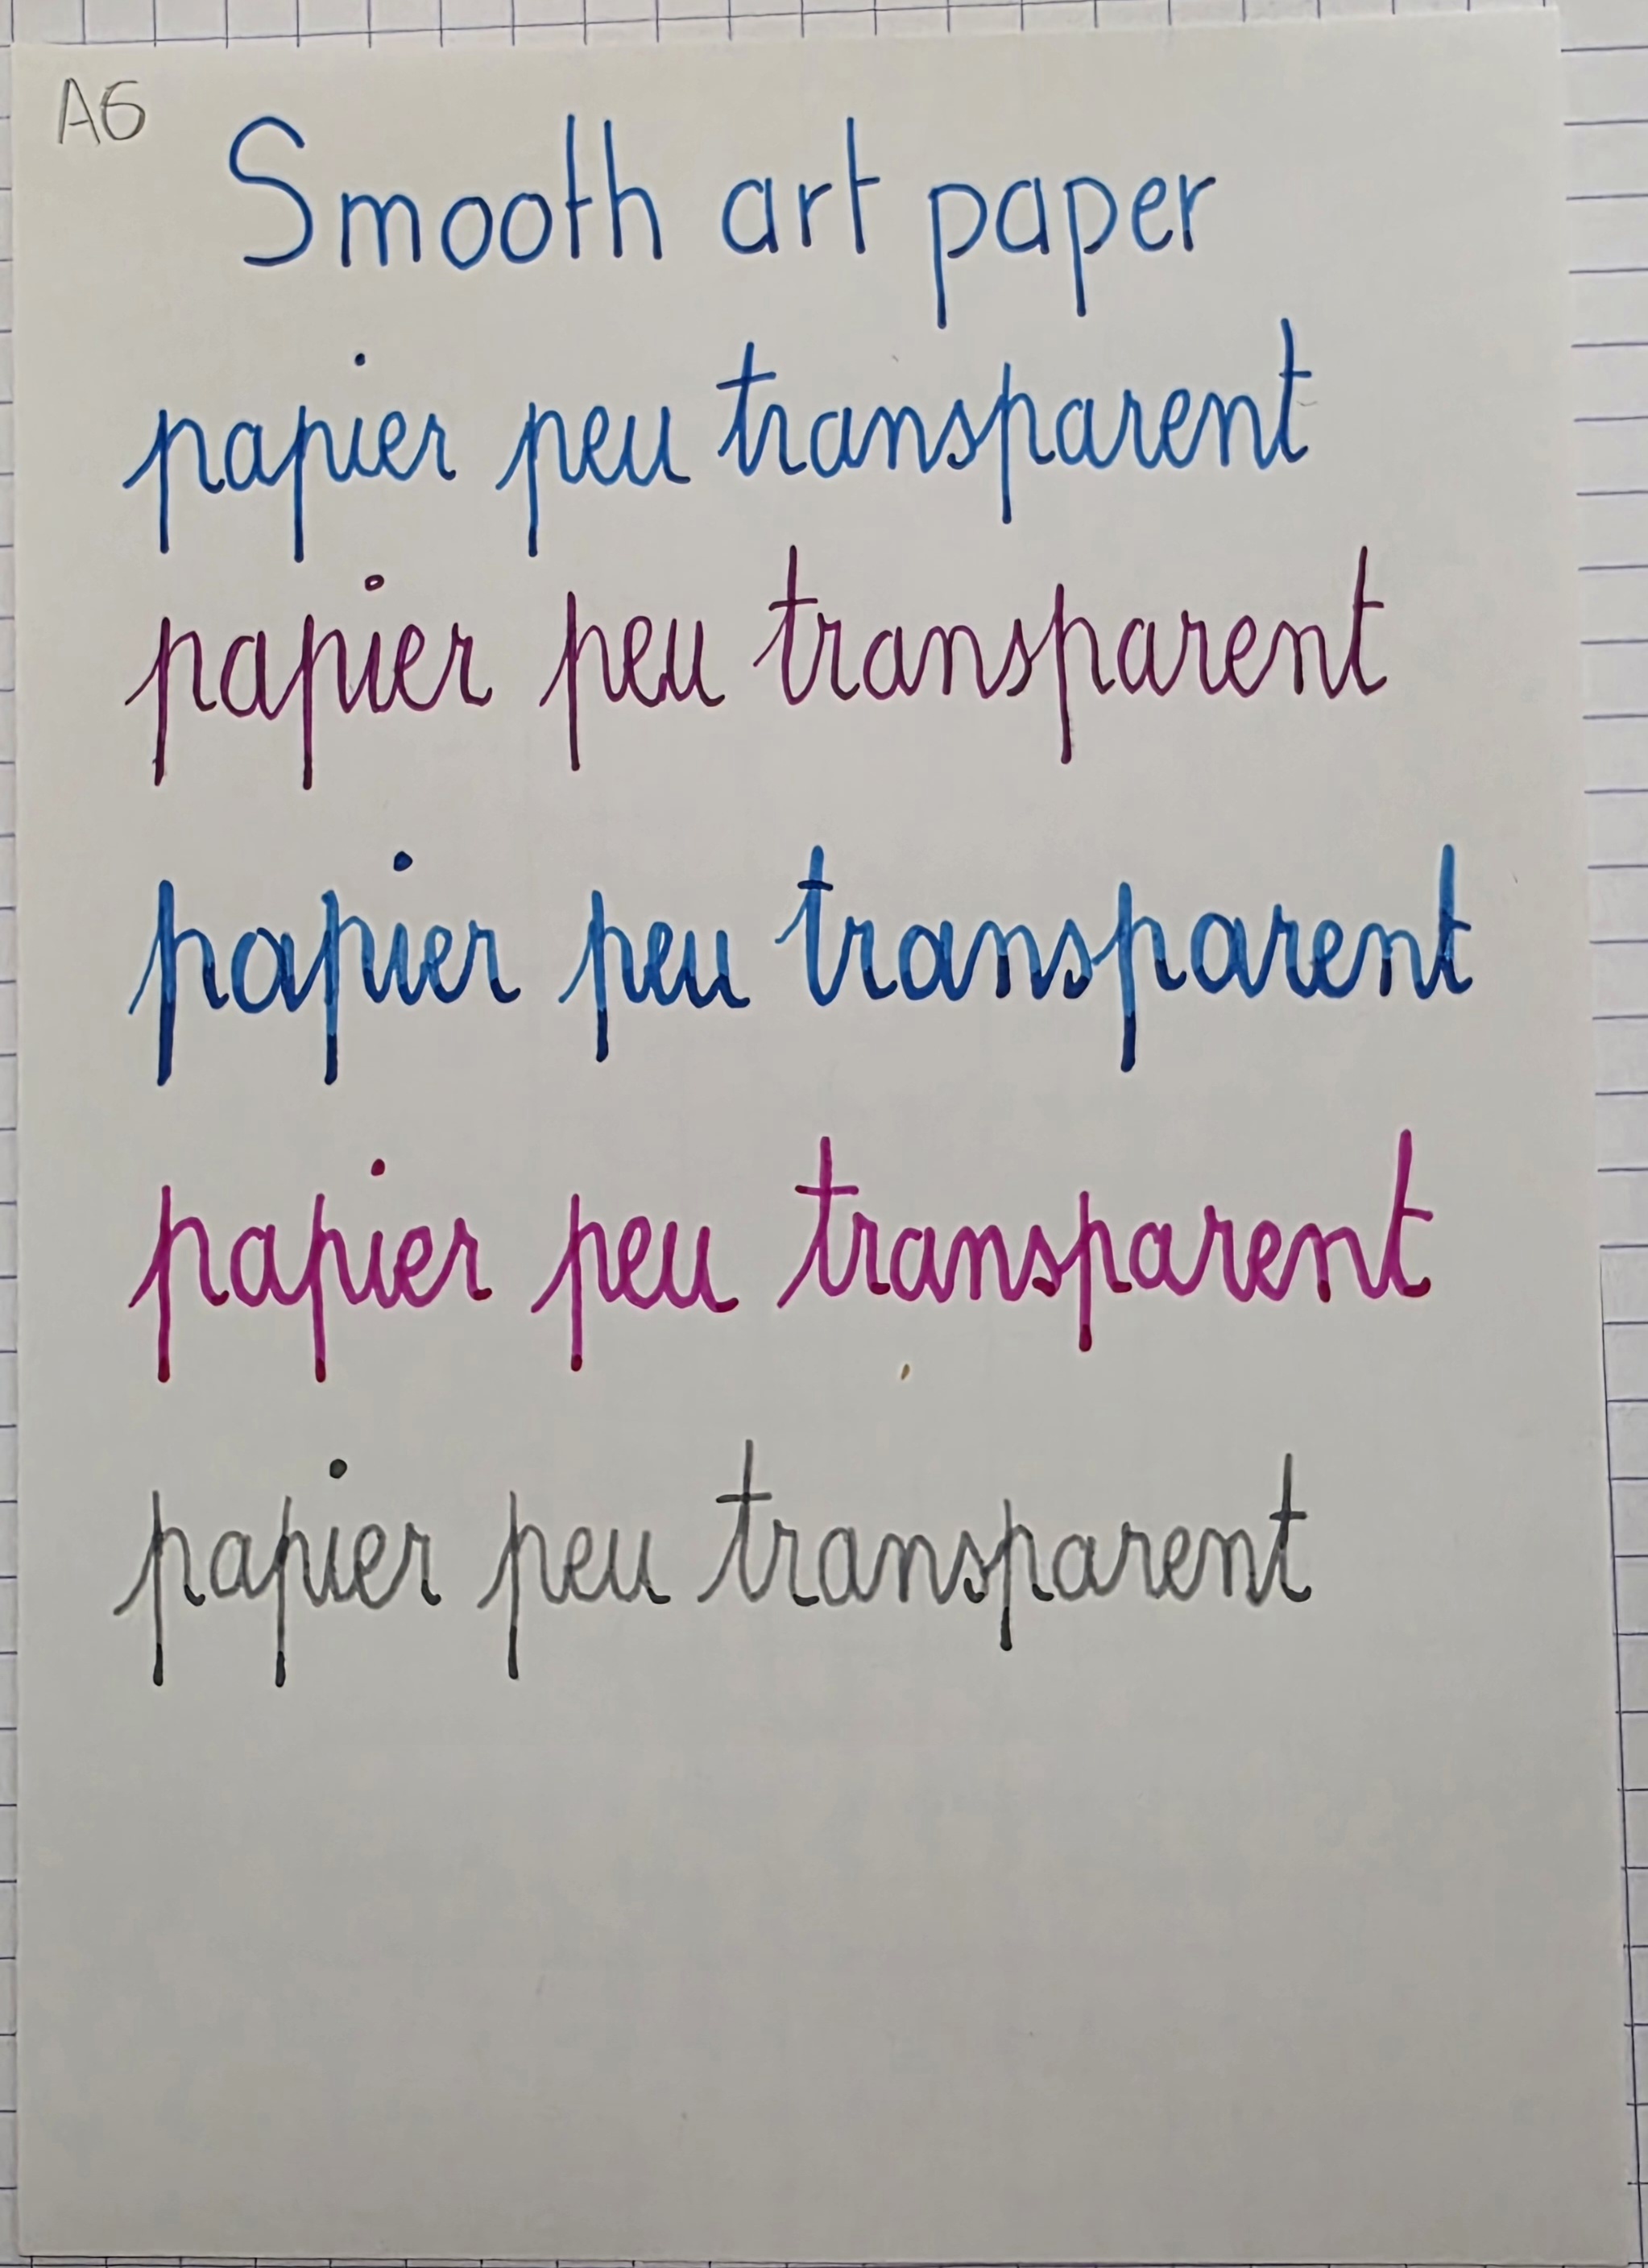 A6
Smooth art paper
papier peu transparent
papier peu transparent
papier peu transparent
papier peu transparent
papier peu transparent